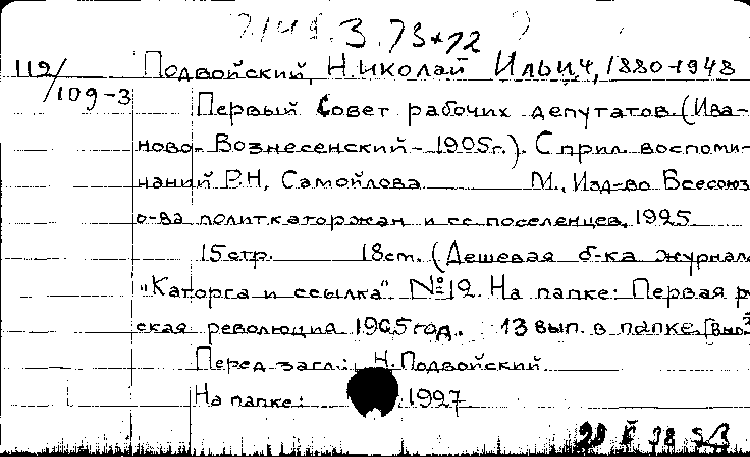 3.73*72
112/109-3
Подвойский, Николай Ильич, 1880-1948
Первый Совет рабочих депутатов (Ива-
ново-Вознесенский-1905г.). С прил. воспоми-
наний Р.Н, Самойлова М., Изд-во Всесоюз
о-ва политкаторжан и сс. поселенцев, 1925
15 стр. 18 см. (Дешевая б-ка журнала
"Каторга и ссылка" №12. На папке: Первая р
ская революция 1905 год. 13 вып. в папке.
Перед загл.: Н. Подвойский
На папке: 1927